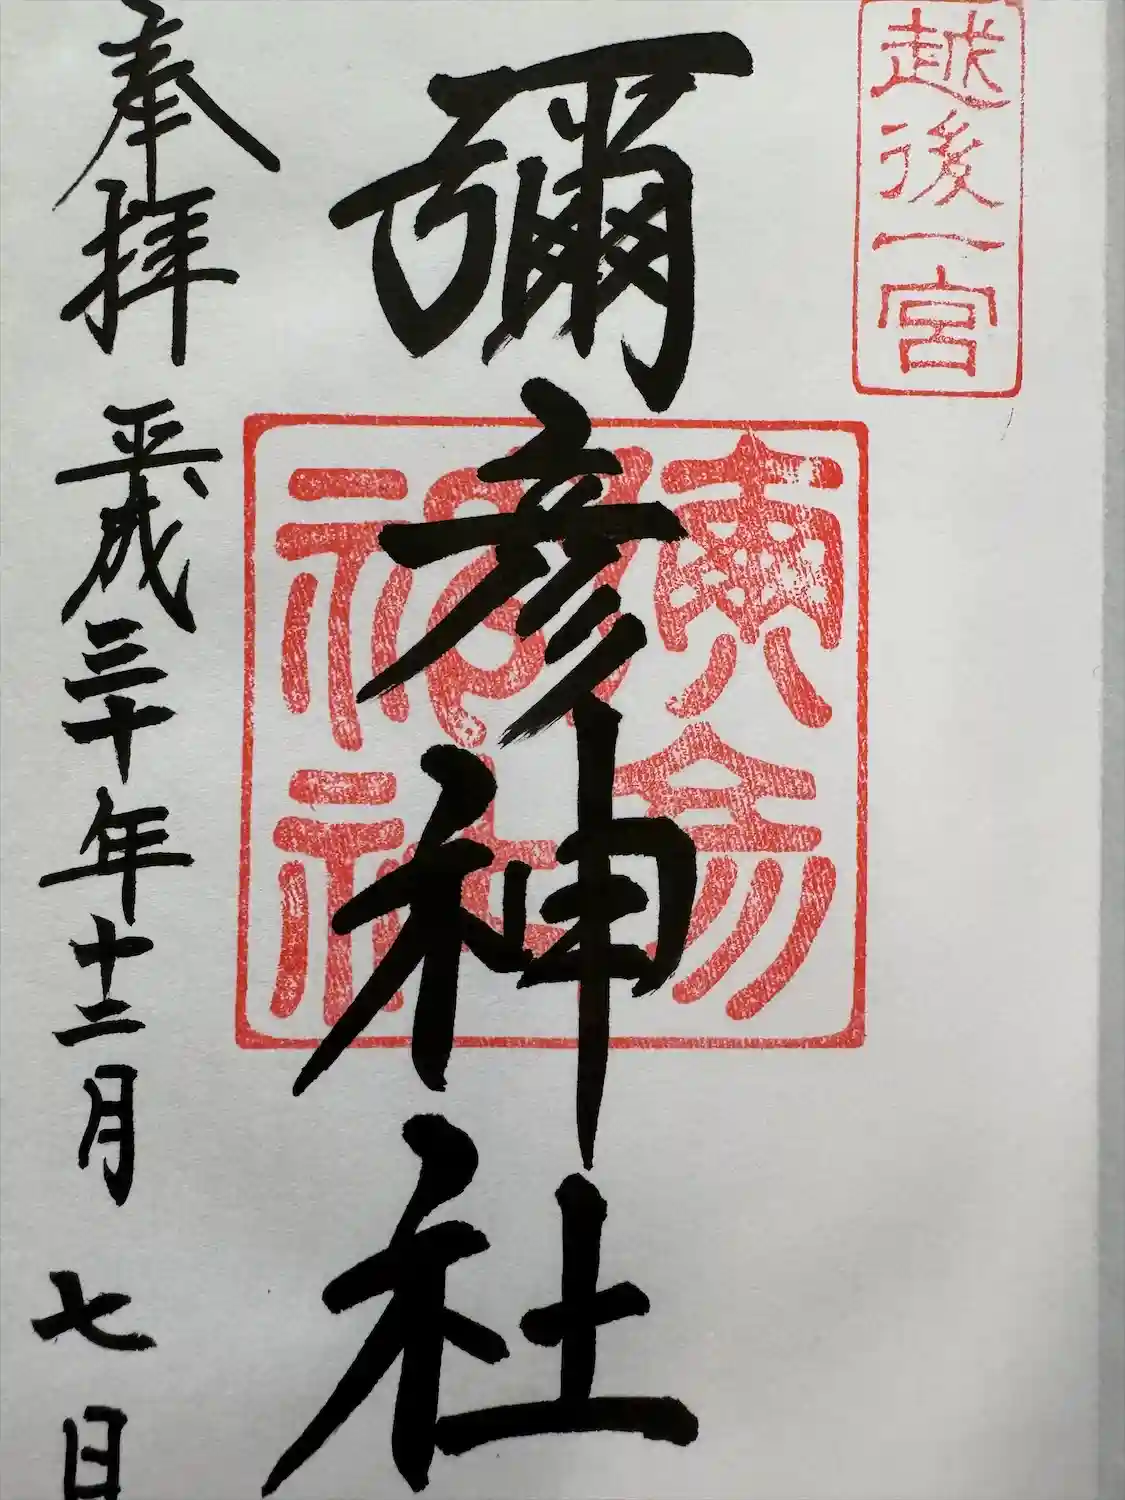 越後一宮
彌彦神社
奉拝 平成三十年十二月七日